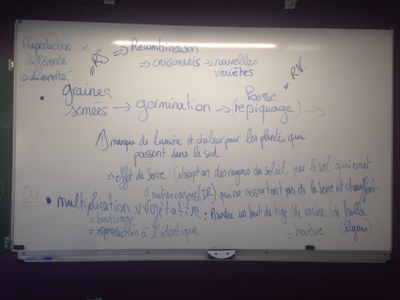 Reproduction
différence
→ diversité
"RS" => Recombinaison
=> croisements → nouvelles
variétés
"RV"
• graines
semées → germination → Pousse
(repiquage) →
1) manque de lumière et chaleur pour les plantes qui
poussent dans le sud
=> effet de serre (absorption des rayons du soleil par le sol qui émet
d'autres rayons (IR) qui ne ressortent pas de la serre et chauffent
• multiplication végétative : Planter un bout de tige / de racine / de feuille
= bouturage
= reproduction à l'identique
= bouture